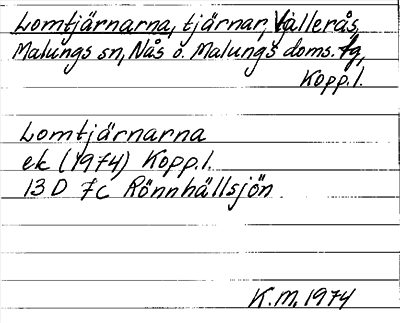 Lomtjärnarna, tjärnar, Vallerås,
Malungs sn, Nås o. Malungs doms. tg,
Kopp.l.
Lomtjärnarna
ek (1974) Kopp.l.
13 D 7c Rönnhällsjön
K.M. 1974